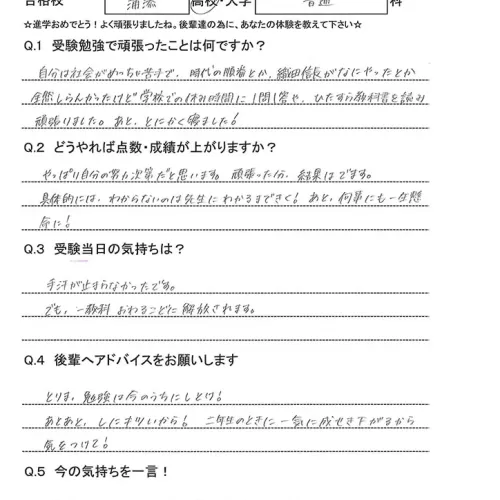 合格校 浦添 高校・大学 普通 科
☆進学おめでとう！よく頑張りましたね。後輩達の為に、あなたの体験を教えて下さい☆
Q.1 受験勉強で頑張ったことは何ですか？
自分は社会がめっちゃ苦手で、時代の順番とか、織田信長がなにやったとか
全然しらんかったけど学校での休み時間に1問1答や、ひたすら教科書を読み
頑張りました。あと、とにかく寝ました！
Q.2 どうやれば点数・成績が上がりますか？
やっぱり自分の努力次第だと思います。頑張った分、結果はでます。
具体的には、わからないのは先生にわかるまできく！あと、何事にも一生懸
命に！
Q.3 受験当日の気持ちは？
手汗が止まらなかったです。
でも、一教科おわるごとに解放されます。
Q.4 後輩へアドバイスをお願いします
とりま、勉強は今のうちにしとけ！
あとあと、しにオワいから！二年生のときに一気に成せき下がるから
気をつけて！
Q.5 今の気持ちを一言！